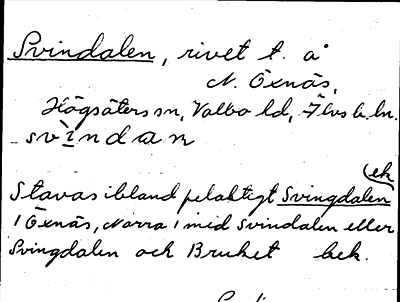 Svindalen, rivet t. å
N. Öxnäs,
Högsäters sn, Valbo hd, Älvsb. ln.
svìndan
ek
Stavas ibland felaktigt Svingdalen
1 Öxnäs, Norra 1 med Svindalen eller
Svingdalen och Bruket bek.